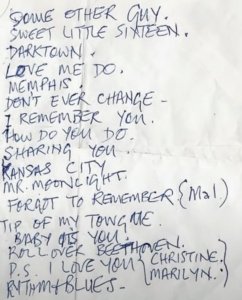 SOME OTHER GUY.
SWEET LITTLE SIXTEEN.
DARKTOWN.
LOVE ME DO.
MEMPHIS.
DON'T EVER CHANGE -
I REMEMBER YOU.
HOW DO YOU DO.
SHARING YOU.
KANSAS CITY
MR. MOONLIGHT.
FORGOT TO REMEMBER (Mal.)
TIP OF MY TONGUE.
BABY ITS YOU.
ROLL OVER BEETHOVEN.
P.S. I LOVE YOU { CHRISTINE. }
RYTHM + BLUES - MARILYN.